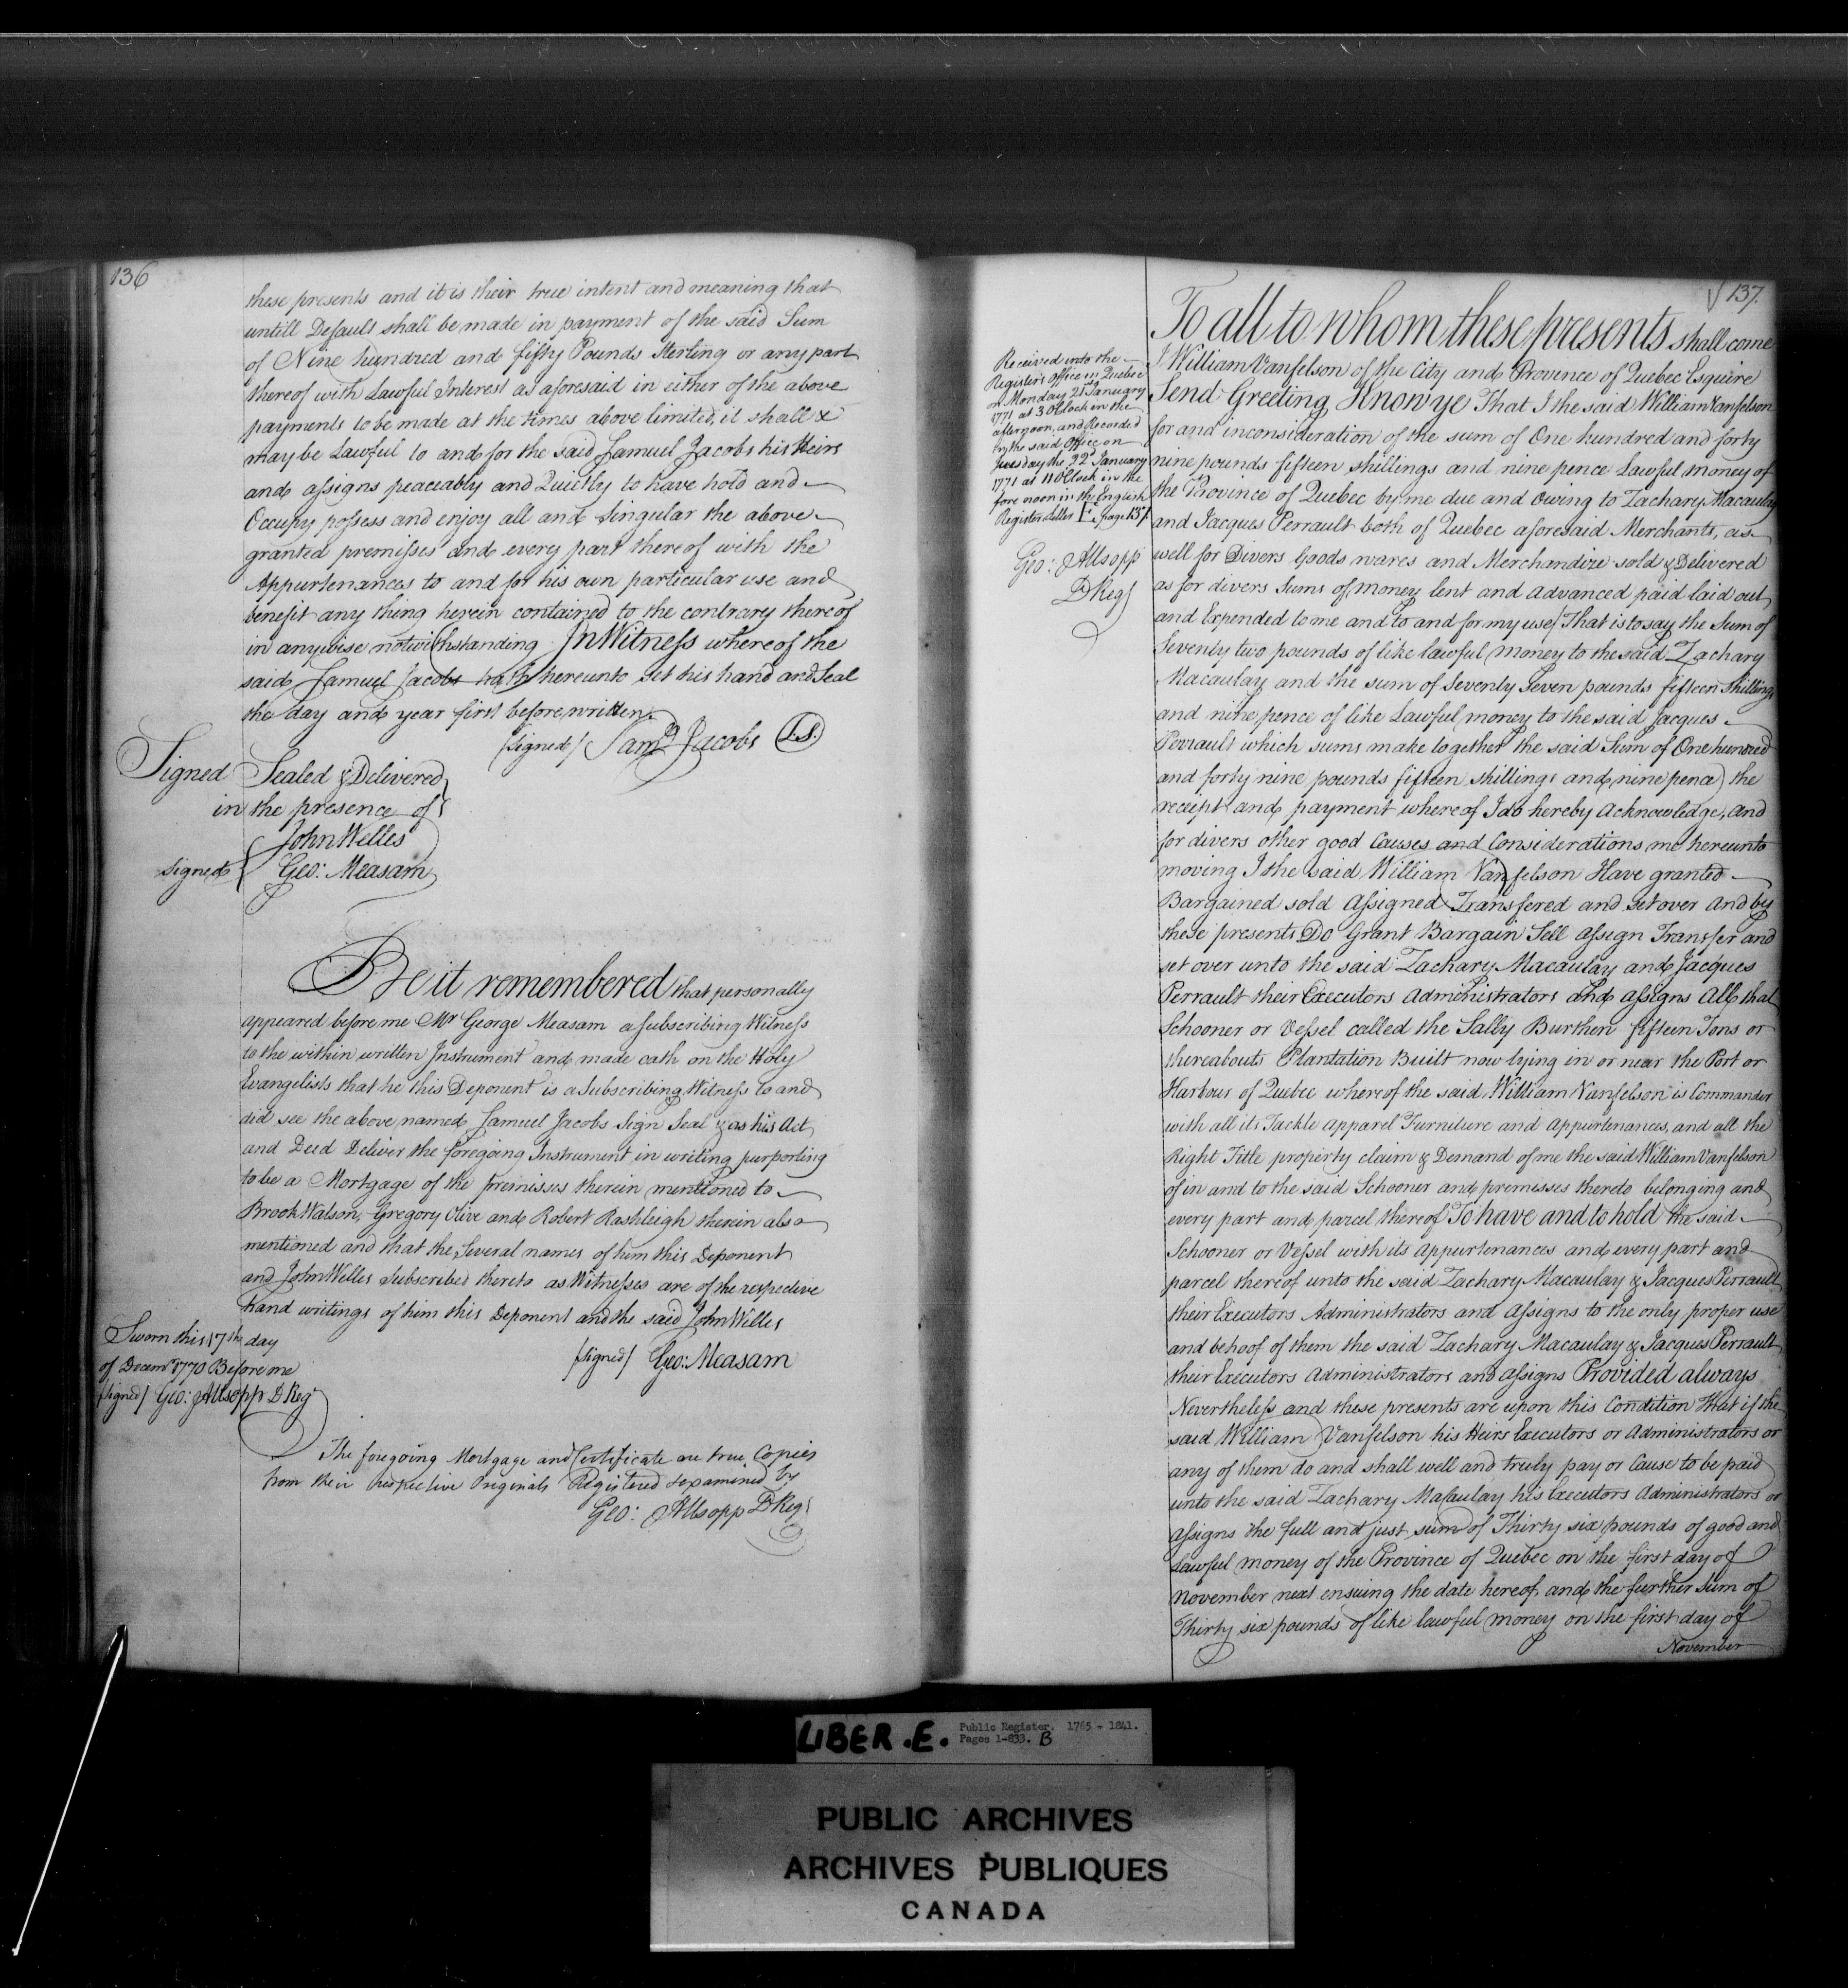 136
these presents and it is their true intent and meaning that
untill Default shall be made in payment of the said Sum
of Nine hundred and fifty Pounds Sterling or any part
thereof with Lawful Interest as aforesaid in either of the above
payments to be made at the times above limited, it shall &
may be Lawful to and for the said Samuel Jacobs his Heirs
and assigns peaceably and Quietly to have hold and
Occupy possess and enjoy all and Singular the above
granted premisses and every part thereof with the
Appurtenances to and for his own particular use and
benefit any thing herein contained to the contrary thereof
in anywise notwithstanding In Witness whereof the
said Samuel Jacobs hath hereunto set his hand and Seal
the day and year first before written.
(signed) Saml Jacobs (L.S.)
Signed Sealed & Delivered
in the presence of
John Welles
signed
Geo: Measam
Be it remembered that personally
appeared before me Mr George Measam a subscribing Witness
to the within written Instrument and made oath on the Holy
Evangelists that he this Deponent is a Subscribing Witness to and
did see the above named Samuel Jacobs Sign Seal & as his Act
and Deed Deliver the foregoing Instrument in writing purporting
to be a Mortgage of the premisses therein mentioned to
Brook Watson, Gregory Olive and Robert Rashleigh therein also
mentioned and that the Several names of him this Deponent
and John Welles Subscribed thereto as Witnesses are of the respective
hand writings of him this Deponent and the said John Welles
Sworn this 17th day
of Decemr 1770 Before me
(signed) Geo: Allsopp D Regr
(signed) Geo: Measam
The foregoing Mortgage and Certificate are true Copies
from their respective Originals Registered & examined by
Geo: Allsopp D Reg
137.
To all to whom these presents shall come
I William Vanfelson of the City and Province of Quebec Esquire
Send Greeting Know ye That I the said William Vanfelson
for and in consideration of the sum of One hundred and forty
nine pounds fifteen shillings and nine pence Lawful money of
the Province of Quebec by me due and Owing to Zachary Macaulay
and Jacques Perrault both of Quebec aforesaid Merchants, as
well for Divers Goods wares and Merchandize sold & Delivered
as for divers Sums of money lent and advanced paid laid out
and Expended to me and to and for my use (That is to say the Sum of
Seventy two pounds of like lawful money to the said Zachary
Macaulay and the sum of Seventy Seven pounds fifteen Shillings
and nine pence of like Lawful money to the said Jacques
Perrault which sums make together the said Sum of One hundred
and forty nine pounds fifteen shillings and nine pence) the
receipt and payment whereof I do hereby Acknowledge, and
for divers other good Causes and Considerations me hereunto
moving I the said William Vanfelson Have granted
Bargained sold Assigned Transfered and set over and by
these presents Do Grant Bargain Sell assign Transfer and
set over unto the said Zachary Macaulay and Jacques
Perrault their Executors Administrators and assigns All that
Schooner or Vessel called the Sally Burthen fifteen Tons or
thereabouts Plantation Built now lying in or near the Port or
Harbour of Quebec whereof the said William Vanfelson is Commander
with all its Tackle Apparel Furniture and Appurtenances, and all the
Right Title property claim & Demand of me the said William Vanfelson
of in and to the said Schooner and premisses thereto belonging and
every part and parcel thereof To have and to hold the said
Schooner or Vessel with its Appurtenances and every part and
parcel thereof unto the said Zachary Macaulay & Jacques Perrault
their Executors Administrators and Assigns to the only proper use
and behoof of them the said Zachary Macaulay & Jacques Perrault
their Executors Administrators and Assigns Provided always
Nevertheless and these presents are upon this Condition that if the
said William Vanfelson his Heirs Executors or Administrators or
any of them do and shall well and truly pay or Cause to be paid
unto the said Zachary Macaulay his Executors Administrators or
assigns the full and just sum of Thirty six pounds of good and
Lawful money of the Province of Quebec on the first day of
November next ensuing the date hereof, and the further Sum of
Thirty six pounds of like lawful money on the first day of
November
Received into the
Register's Office in Quebec
on Monday 21st January
1771 at 3 OClock in the
afternoon, and Recorded
in the said Office on
Tuesday the 22d January
1771 at 11 OClock in the
fore noon in the English
Register Letter E, page 137.
Geo: Allsopp
D Reg
LIBER .E.
Public Register. 1765 - 1841.
Pages 1-833. B
PUBLIC ARCHIVES
ARCHIVES PUBLIQUES
CANADA